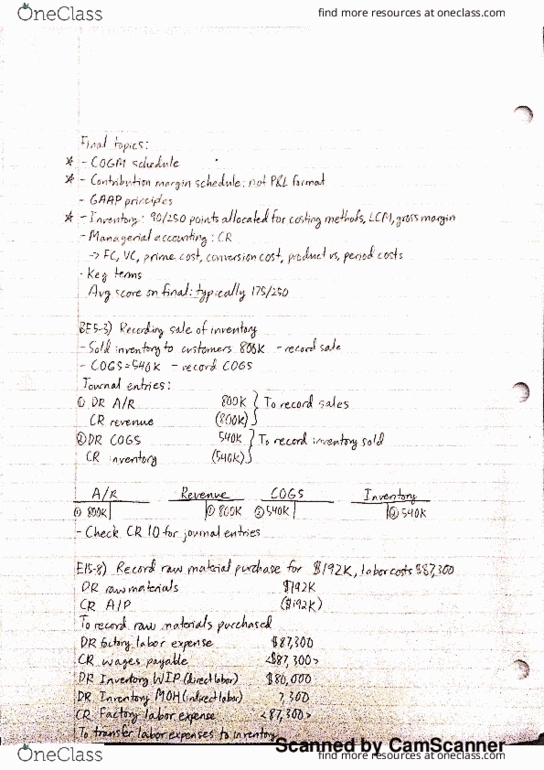 OneClass
find more resources at oneclass.com
Final topics:
* - COGM schedule
* - Contribution margin schedule: not P&L format
- GAAP principles
* - Inventory: 90/250 points allocated for costing methods, LCM, gross margin
- Managerial accounting: CR
-> FC, VC, prime cost, conversion cost, product vs. period costs
- Key terms
Avg score on final: typically 175/250
BE5-3) Recording sale of inventory
- Sold inventory to customers 800K - record sale
- COGS=540K - record COGS
Journal entries:
① DR A/R 800K } To record sales
CR revenue (800K)
② DR COGS 540K } To record inventory sold
CR inventory (540K)
A/R Revenue COGS Inventory
① 800K ① 800K ② 540K ② 540K
- Check CR 10 for journal entries
E15-8) Record raw material purchase for $192K, labor costs $87,300
DR raw materials $192K
CR A/P ($192K)
To record raw materials purchased
DR factory labor expense $87,300
CR wages payable <$87,300>
DR Inventory WIP (direct labor) $80,000
DR Inventory MOH (indirect labor) 7,300
CR Factory labor expense <87,300>
To transfer labor expenses to inventory
Scanned by CamScanner
OneClass
find more resources at oneclass.com